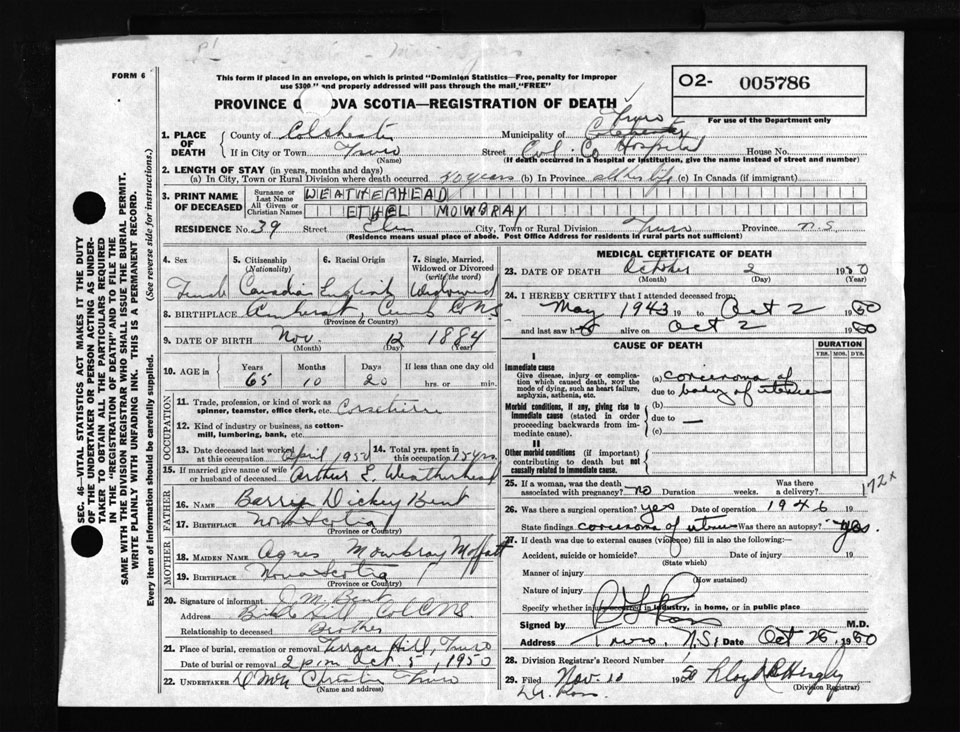 FORM 6
This form if placed in an envelope, on which is printed "Dominion Statistics—Free, penalty for improper
use $300" and properly addressed will pass through the mail "FREE"
O2- 005786
For use of the Department only
PROVINCE O OVA SCOTIA—REGISTRATION OF DEATH
1. PLACE OF DEATH
County of Colchester Municipality of Truro
If in City or Town Truro Street Col. Co Hospital House No.
(Name) (If death occurred in a hospital or institution, give the name instead of street and number)
2. LENGTH OF STAY (in years, months and days)
(a) In City, Town or Rural Division where death occurred 40 years (b) In Province all her life (c) In Canada (if immigrant)
3. PRINT NAME OF DECEASED
Surname or Last Name WEATHERHEAD
All Given or Christian Names ETHEL MOWBRAY
RESIDENCE No. 39 Street Elm City, Town or Rural Division Truro Province N.S.
(Residence means usual place of abode. Post Office Address for residents in rural parts not sufficient)
4. Sex 5. Citizenship (Nationality) 6. Racial Origin 7. Single, Married, Widowed or Divorced (write the word)
Female Canadian English Widowed
8. BIRTHPLACE Amherst, Cumb Co NS
(Province or Country)
9. DATE OF BIRTH Nov. 12 1884
(Month) (Day) (Year)
10. AGE in Years Months Days If less than one day old
65 10 20 hrs. or min.
OCCUPATION
11. Trade, profession, or kind of work as
spinner, teamster, office clerk, etc. Corsetiere
12. Kind of industry or business, as cotton-
mill, lumbering, bank, etc.
13. Date deceased last worked at this occupation April 1950 14. Total yrs. spent in this occupation 15 yrs
15. If married give name of wife
or husband of deceased Arthur L. Weatherhead
FATHER
16. Name Dickey Bent
17. Birthplace Nova Scotia
(Province or Country)
MOTHER
18. MAIDEN NAME Agnes Mowbray Moffatt
19. BIRTHPLACE Nova Scotia
(Province or Country)
20. Signature of informant J. M. Bent
Address Bible Hill, Col Co NS.
Relationship to deceased Brother
21. Place of burial, cremation or removal Terrace Hill, Truro
Date of burial or removal 2 p.m Oct. 5, 1950
22. UNDERTAKER Christie Truro
(Name and address)
MEDICAL CERTIFICATE OF DEATH
23. DATE OF DEATH October 2 1950
(Month) (Day) (Year)
24. I HEREBY CERTIFY that I attended deceased from:
May 1943 19 to Oct 2 1950
and last saw h alive on Oct 2 1950
CAUSE OF DEATH DURATION
YRS. MOS. DYS.
I
Immediate cause
Give disease, injury or compli-
cation which caused death, NOT the
mode of dying, such as heart failure,
asphyxia, asthenia, etc.
(a) carcinoma of
due to body of uterus
Morbid conditions, if any, giving rise to
immediate cause (stated in order
proceeding backwards from im-
mediate cause).
(b)
due to —
(c)
II
Other morbid conditions (if important)
contributing to death but not
causally related to immediate cause.
25. If a woman, was the death
associated with pregnancy? no Duration weeks. Was there a delivery?
172x
26. Was there a surgical operation? yes Date of operation 1946 19
State findings carcinoma of uterus Was there an autopsy? yes.
27. If death was due to external causes (violence) fill in also the following:—
Accident, suicide or homicide? Date of injury 19
(State which)
Manner of injury
(How sustained)
Nature of injury
Specify whether injury occurred in industry, in home, or in public place
Signed by Ross M.D.
Address Truro, N.S. Date Oct 25, 1950
28. Division Registrar's Record Number
29. Filed Nov. 10 1950 Lloyd
(Division Registrar)
Ross.
SEC. 46—VITAL STATISTICS ACT MAKES IT THE DUTY
OF THE UNDERTAKER OR PERSON ACTING AS UNDER-
TAKER TO OBTAIN ALL THE PARTICULARS REQUIRED
IN THE "REGISTRATION OF DEATH" AND TO FILE THE
SAME WITH THE DIVISION REGISTRAR WHO SHALL ISSUE THE BURIAL PERMIT.
WRITE PLAINLY WITH UNFADING INK. THIS IS A PERMANENT RECORD.
Every item of information should be carefully supplied. (See reverse side for instructions.)